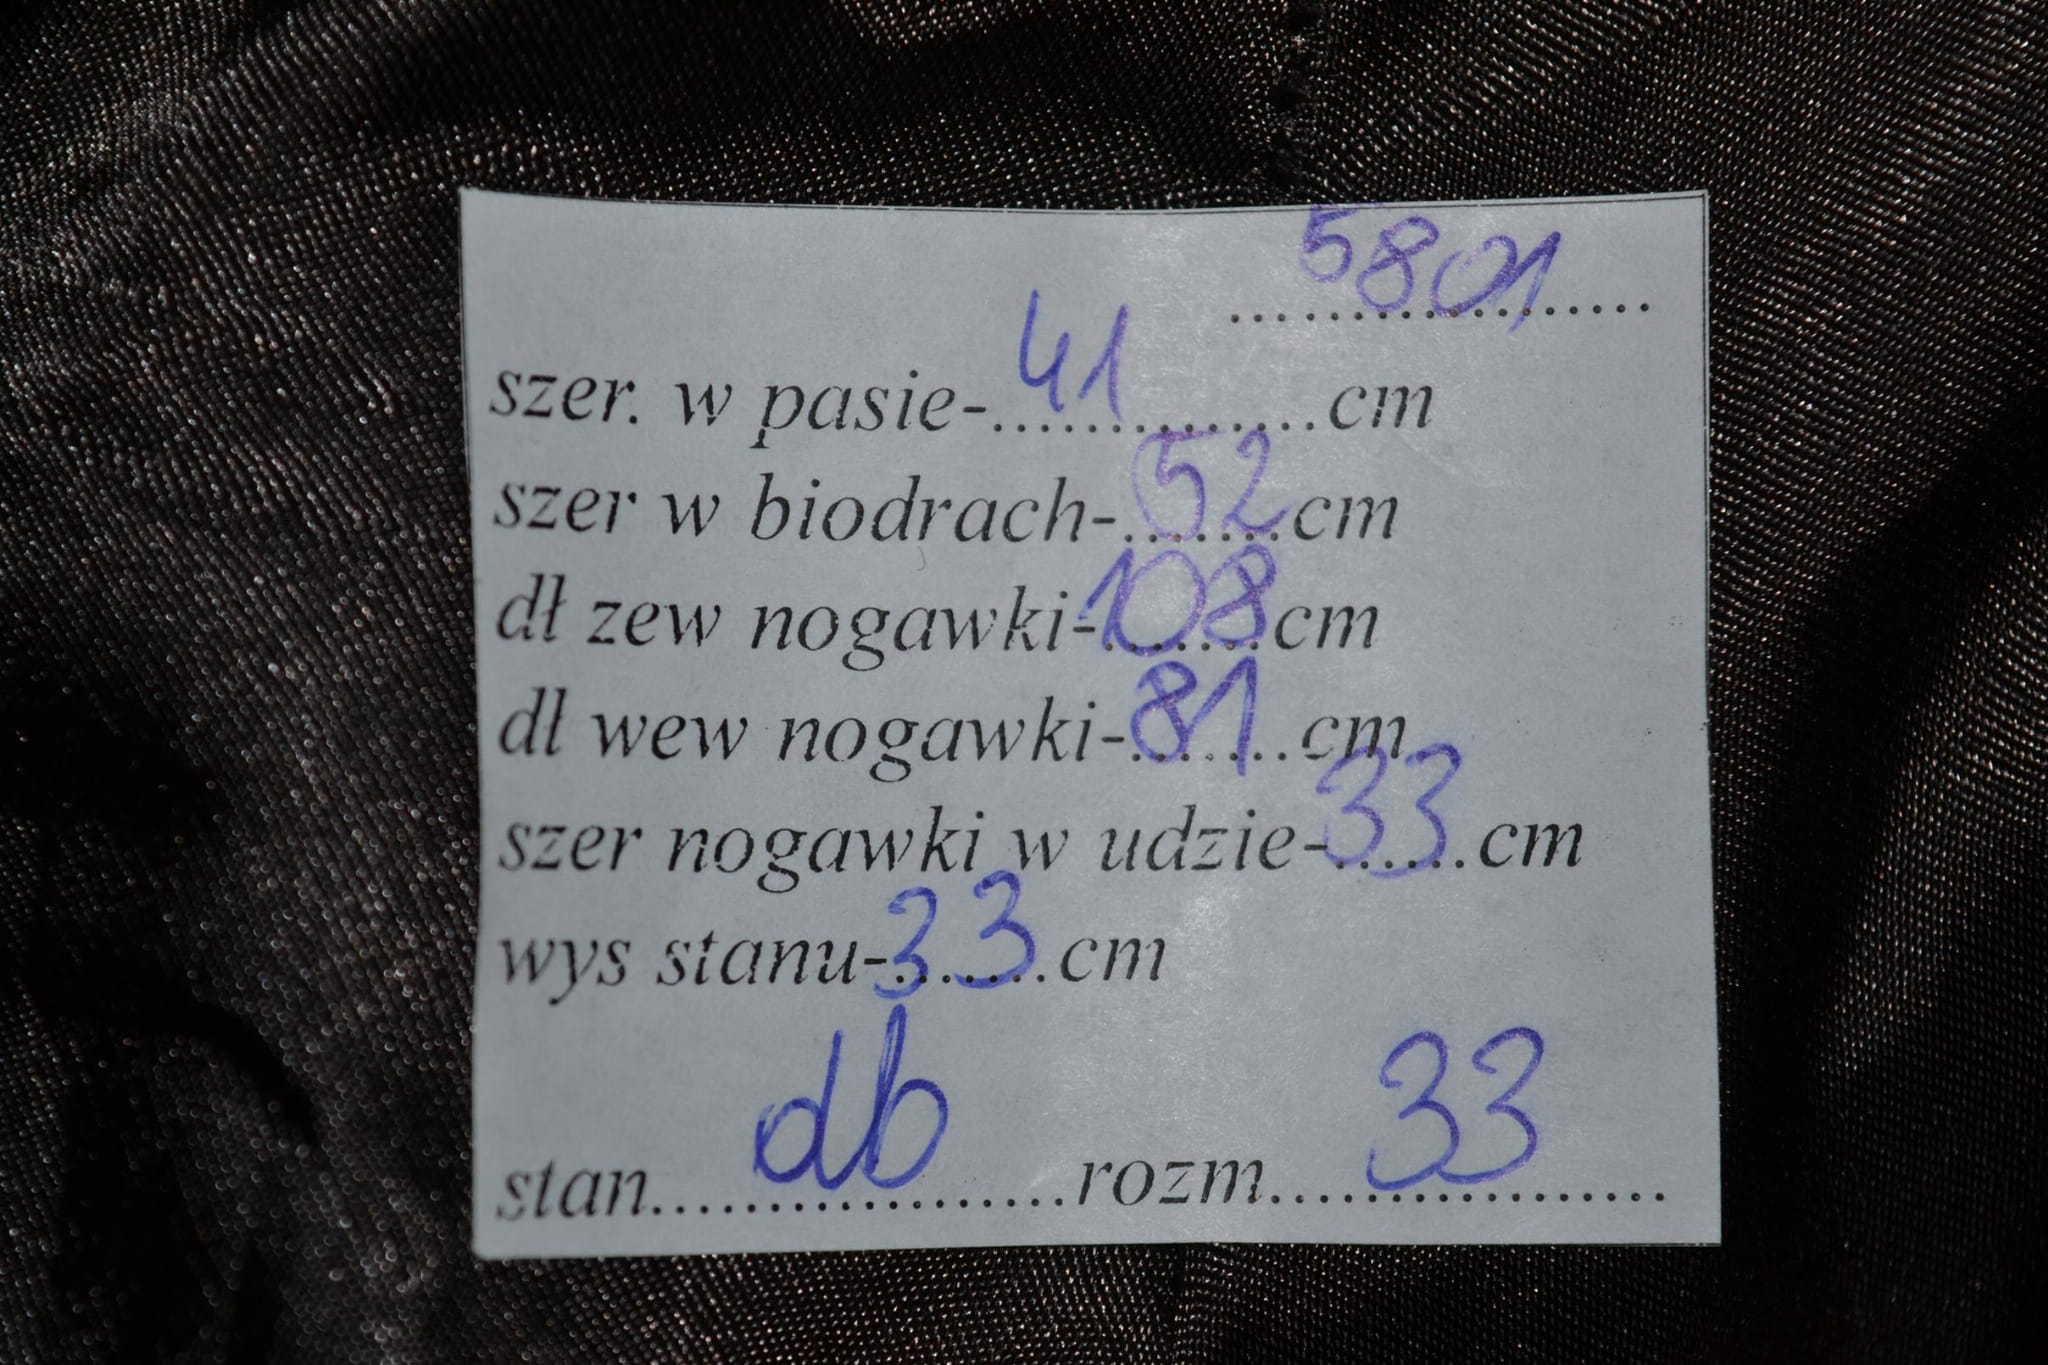 5801
szer. w pasie-41cm
szer w biodrach-52cm
dł zew nogawki-108cm
dł wew nogawki-81cm
szer nogawki w udzie-33cm
wys stanu-33cm
stan db rozm 33